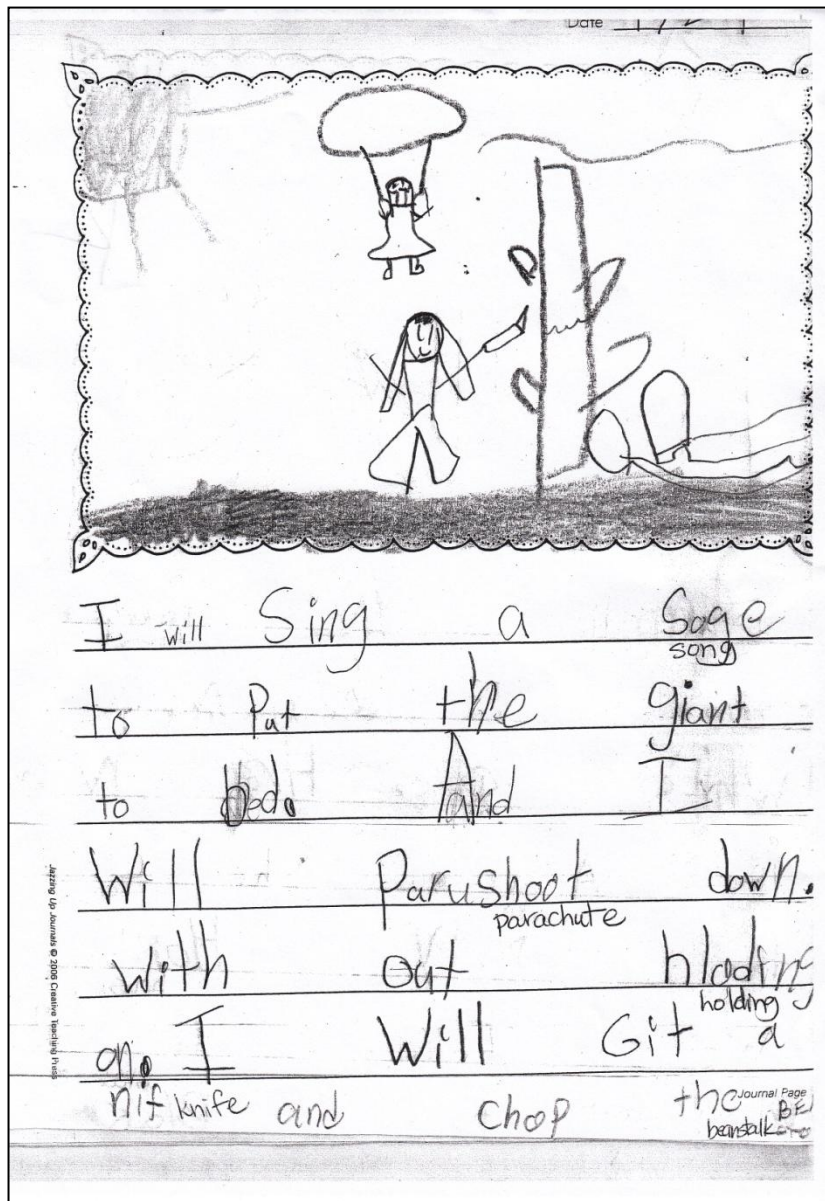 Date
I will Sing a Soge
song
to Put the giant
to bed. And I
Will Parushoot down.
parachute
with out hlading
holding
on. I Will Git a
nif knife and Chop the Journal Page
BE
beanstalk
Jazzing Up Journals © 2006 Creative Teaching Press